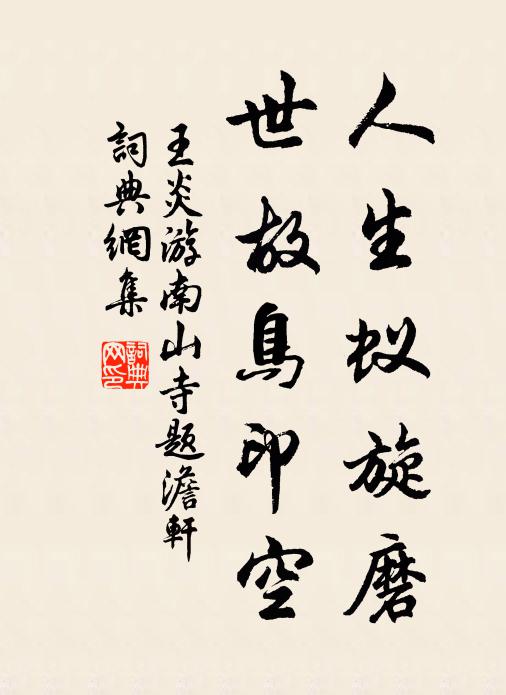 人生蚁旋磨
世故鳥印空
王炎游南山寺題澹軒
詞典網集
詞典網印